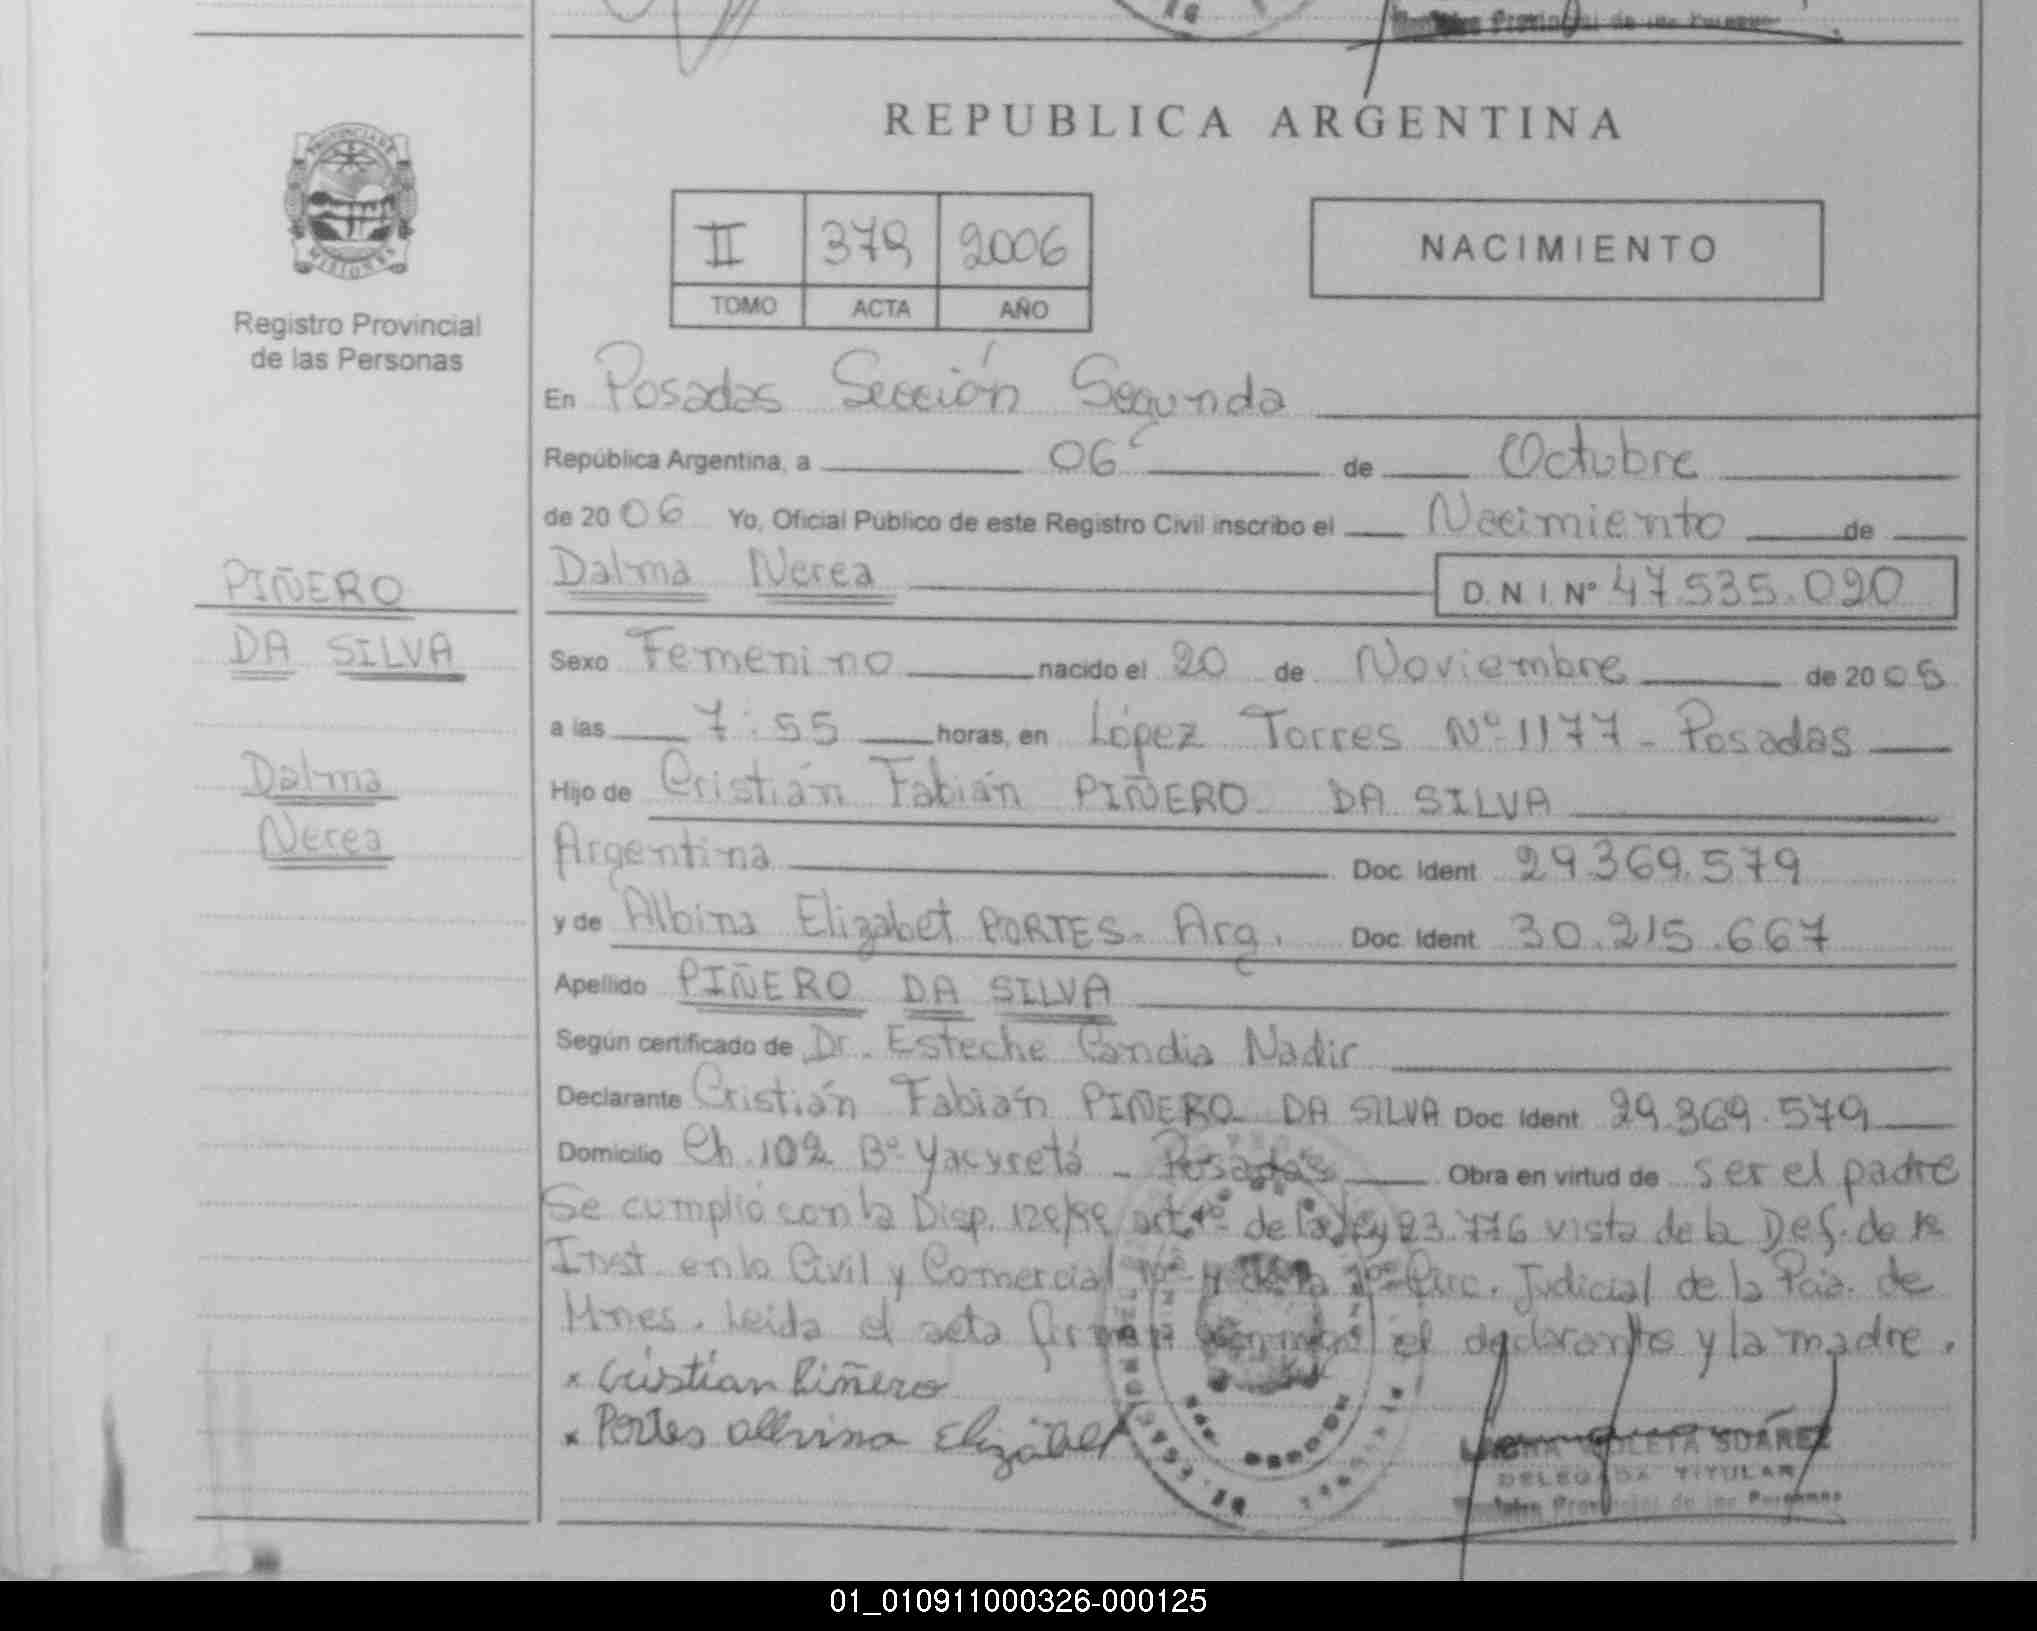 REPUBLICA ARGENTINA
PROVINCIA DE
MISIONES
Registro Provincial
de las Personas
II 379 2006
TOMO ACTA AÑO
NACIMIENTO
En Posadas Sección Segunda
República Argentina, a 06 de Octubre
de 2006 Yo, Oficial Público de este Registro Civil inscribo el Nacimiento de
PIÑERO
DA SILVA
Dalma
Nerea
Dalma Nerea D.N.I. Nº 47.535.020
Sexo Femenino nacido el 20 de Noviembre de 2005
a las 7:55 horas, en López Torres Nº 1177 - Posadas
Hijo de Cristián Fabián PIÑERO DA SILVA
Argentina Doc. Ident 29.369.579
y de Albina Elizabet PORTES. Arg. Doc. Ident 30.215.667
Apellido PIÑERO DA SILVA
Según certificado de Dr. Esteche Candia Nadir
Declarante Cristián Fabián PIÑERO DA SILVA Doc. Ident 29.369.579
Domicilio Ch. 102 Bº Yacyretá - Posadas Obra en virtud de ser el padre
Se cumplió con la Disp. art. de la ley 23.776 vista de la Def. de
Inst. en lo Civil y Comercial de la Circ. Judicial de la Pcia. de
Mnes. Leída el acta firman el declarante y la madre.
x Cristian Piñero
x Portes Albina Elizabet
VIOLETA SUÁREZ
DELEGADA TITULAR
Provincial de las Personas
01_010911000326-000125